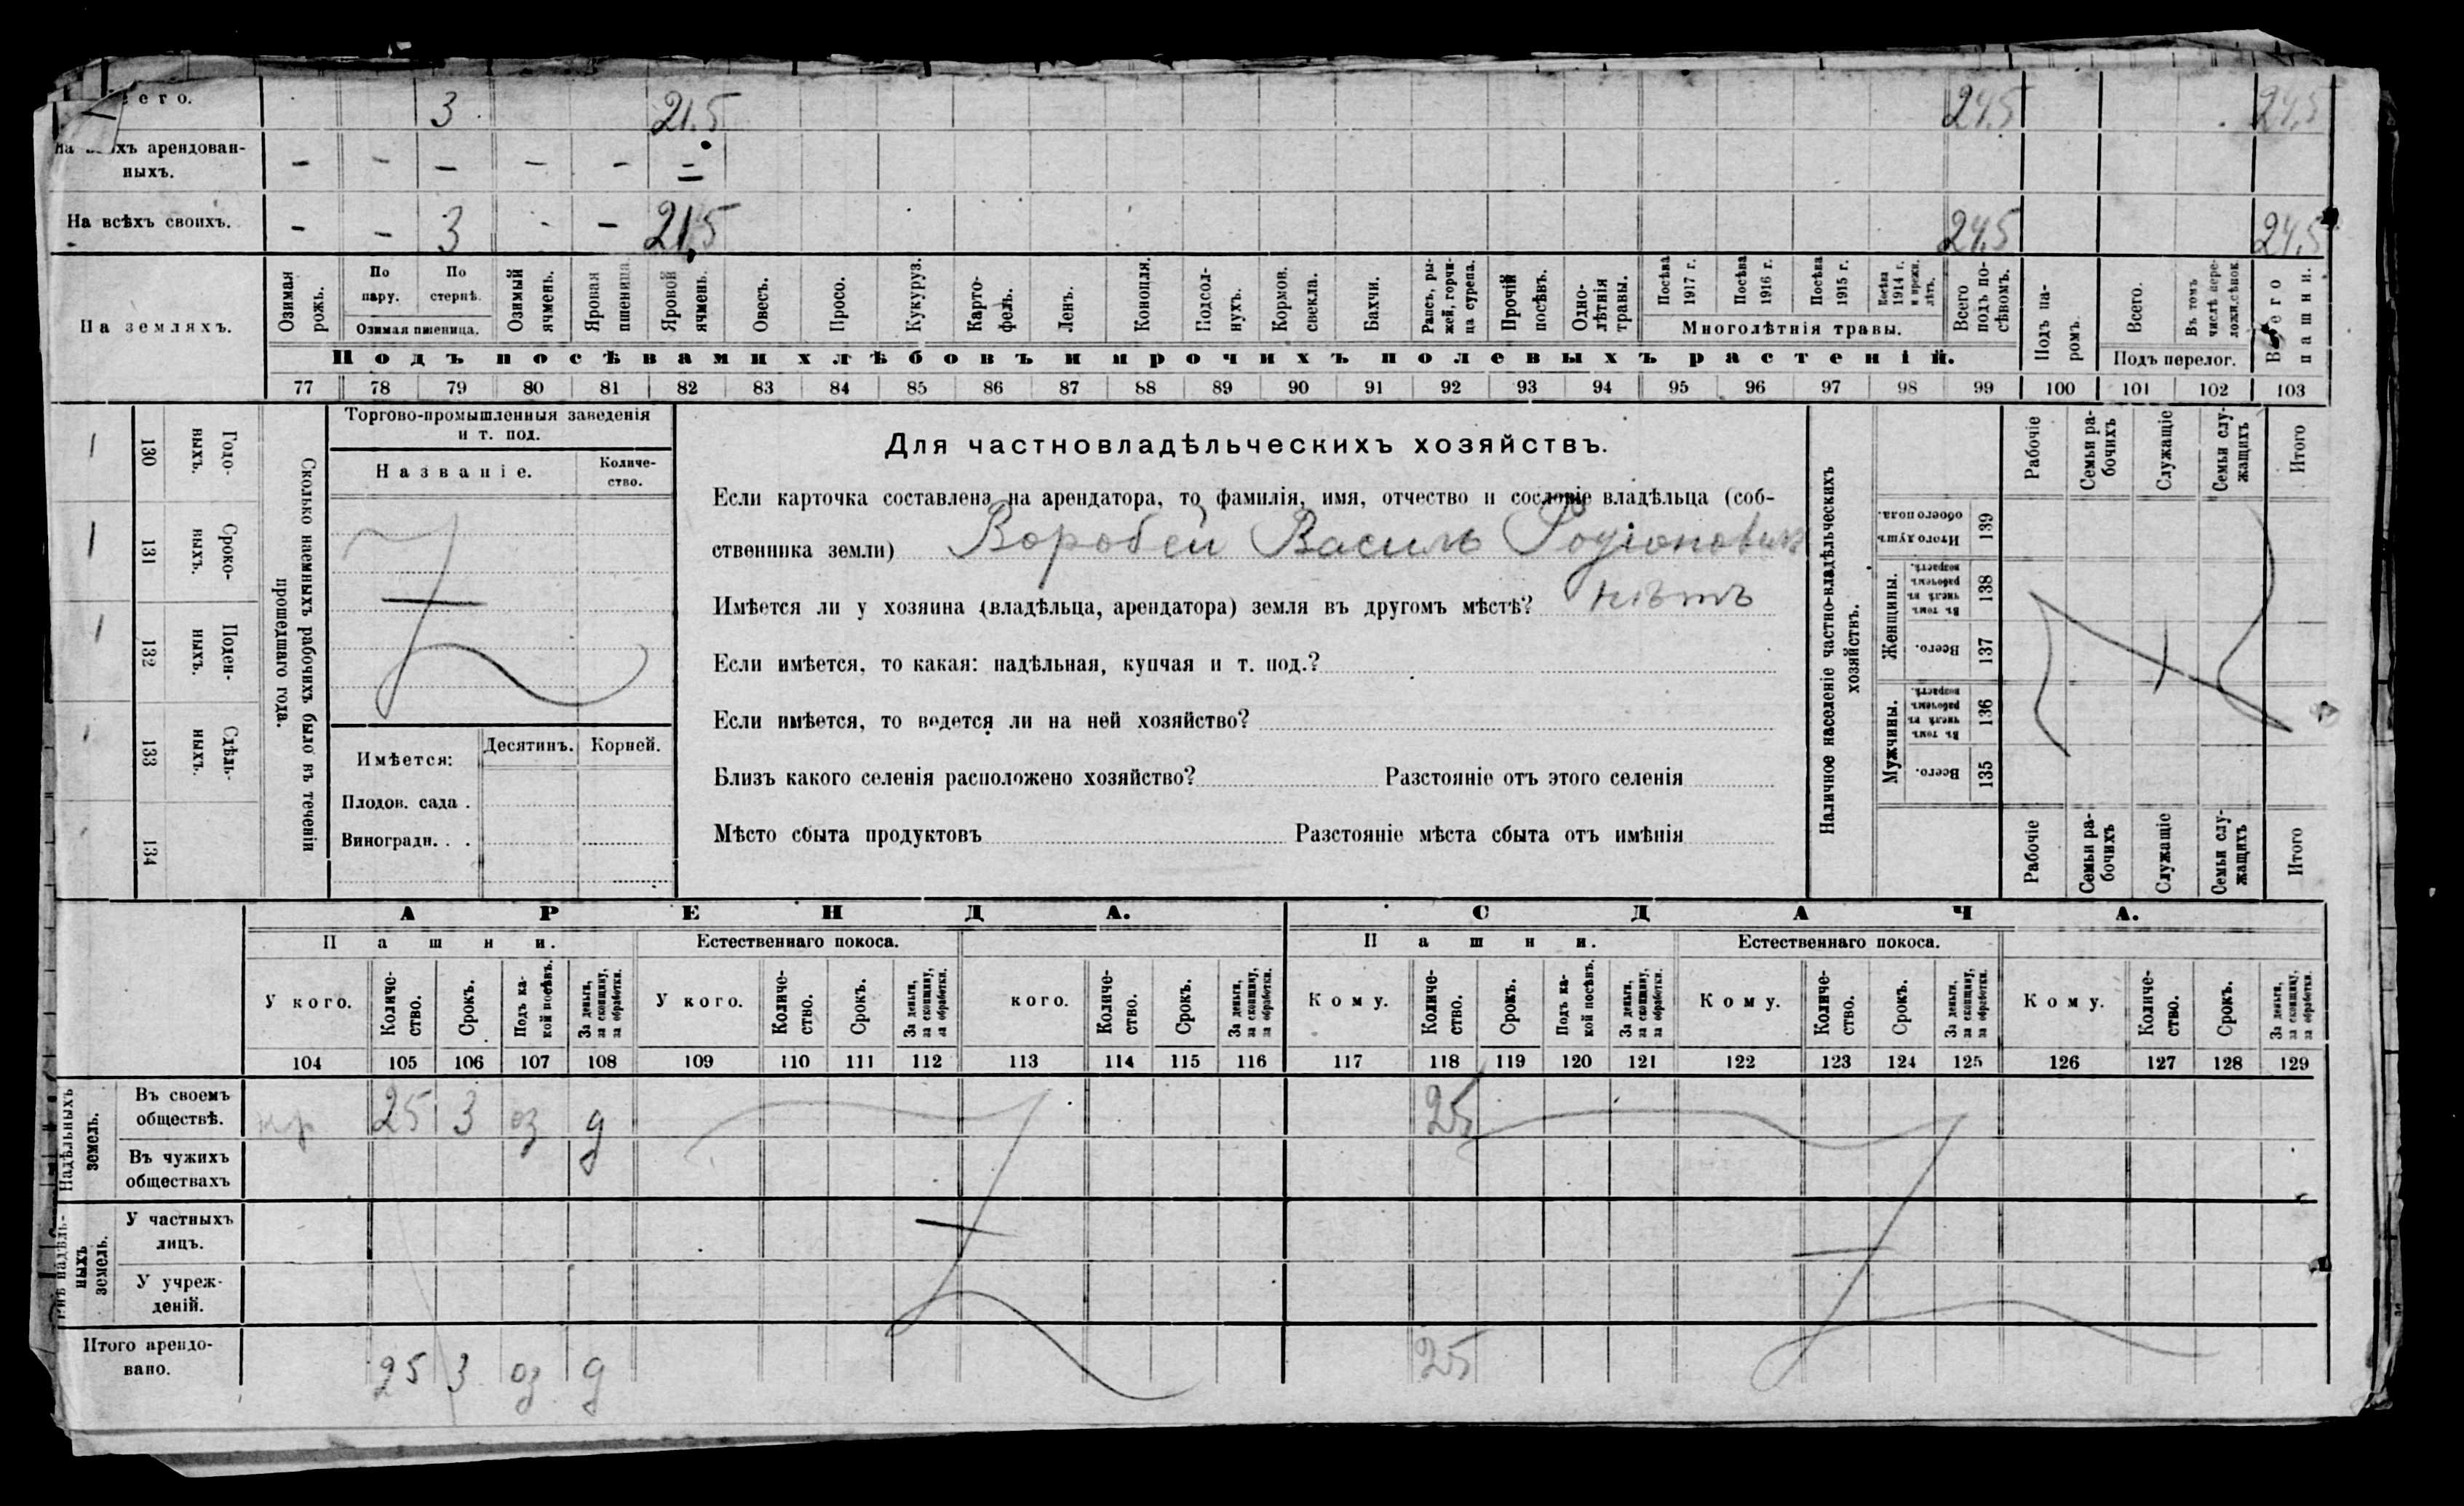 его. 3 21.5 24,5 24,5
На всѣхъ арендован-
ныхъ. - - - - - =
На всѣхъ своихъ. - - 3 - - 21,5 24,5 24,5
На земляхъ.
Озимая рожь.
По пару.
По стернѣ.
Озимая пшеница.
Озимый ячмень.
Яровая пшеница.
Яровой ячмень.
Овесъ.
Просо.
Кукуруз.
Карто-
фель.
Ленъ.
Конопля.
Подсол-
нухъ.
Кормов.
свекла.
Бахчи.
Рапсъ, ры-
жей, горчи-
ца сурепа.
Прочій
посѣвъ.
Одно-
лѣтнія
травы.
Посѣва
1917 г.
Посѣва
1916 г.
Посѣва
1915 г.
Посѣва
1914 г.
и прежн.
лѣтъ.
Многолѣтнія травы.
Всего
подъ по-
сѣвомъ.
Подъ па-
ромъ.
Всего.
Въ томъ
числѣ пере-
ложн.сѣнок.
Подъ перелог.
Всего
пашни.
Подъ посѣвами хлѣбовъ и прочихъ полевыхъ растеній.
77 78 79 80 81 82 83 84 85 86 87 88 89 90 91 92 93 94 95 96 97 98 99 100 101 102 103
130 Годо-
ныхъ.
131 Сроко-
ныхъ.
132 Поден-
ныхъ.
133 Сдѣль-
ныхъ.
134
Сколько наемныхъ рабочихъ было въ теченіи
прошедшаго года.
Торгово-промышленныя заведенія
и т. под.
Названіе.
Количе-
ство.
Имѣется:
Десятинъ. Корней.
Плодов. сада .
Виноградн. . .
Для частновладѣльческихъ хозяйствъ.
Если карточка составлена на арендатора, то фамилія, имя, отчество и сословіе владѣльца (соб-
ственника земли) Воробей Василь Родіоновичъ
Имѣется ли у хозяина (владѣльца, арендатора) земля въ другомъ мѣстѣ? нѣтъ
Если имѣется, то какая: надѣльная, купчая и т. под.?
Если имѣется, то ведется ли на ней хозяйство?
Близъ какого селенія расположено хозяйство? Разстояніе отъ этого селенія
Мѣсто сбыта продуктовъ Разстояніе мѣста сбыта отъ имѣнія
Наличное населеніе частно-владѣльческихъ
хозяйствъ.
Рабочіе
Семьи ра-
бочихъ
Служащіе
Семьи слу-
жащихъ
Итого
Итого душъ
обоего пола.
139
Женщины.
Въ томъ
числѣ въ
рабочемъ
возрастѣ.
138
Всего.
137
Мужчины.
Въ томъ
числѣ въ
рабочемъ
возрастѣ.
136
Всего.
135
Рабочіе
Семьи ра-
бочихъ
Служащіе
Семьи слу-
жащихъ
Итого
АРЕНДА. СДАЧА.
Пашни. Естественнаго покоса. Пашни. Естественнаго покоса.
У кого.
Количе-
ство.
Срокъ.
Подъ ка-
кой посѣвъ.
За деньги,
за скопщину,
за обработки.
У кого.
Количе-
ство.
Срокъ.
За деньги,
за скопщину,
за обработки.
кого.
Количе-
ство.
Срокъ.
За деньги,
за скопщину,
за обработки.
Кому.
Количе-
ство.
Срокъ.
Подъ ка-
кой посѣвъ.
За деньги,
за скопщину,
за обработки.
Кому.
Количе-
ство.
Срокъ.
За деньги,
за скопщину,
за обработки.
Кому.
Количе-
ство.
Срокъ.
За деньги,
за скопщину,
за обработки.
104 105 106 107 108 109 110 111 112 113 114 115 116 117 118 119 120 121 122 123 124 125 126 127 128 129
Надѣльныхъ
земель.
Въ своемъ
обществѣ. кр 25 3 оз д 25
Въ чужихъ
обществахъ
Внѣ надѣль-
ныхъ
земель.
У частныхъ
лицъ.
У учреж-
деній.
Итого арендо-
вано. 25 3 оз д 25